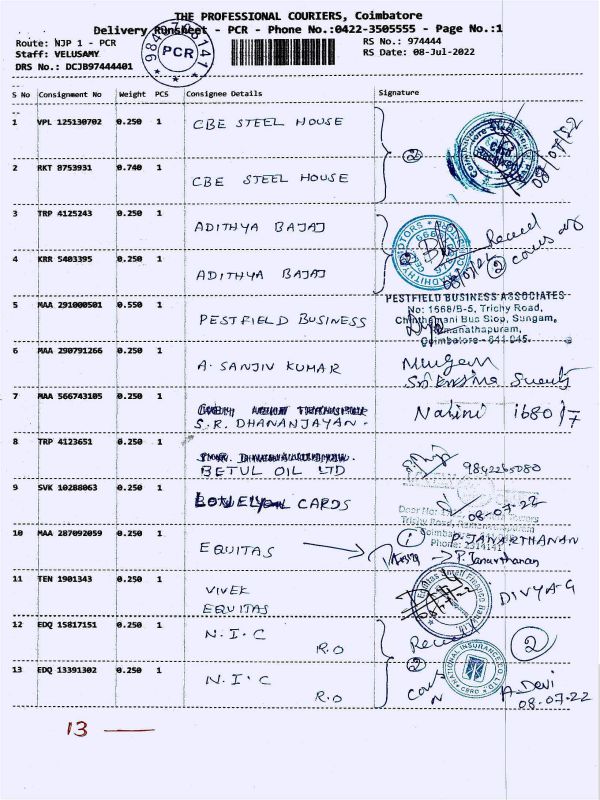 THE PROFESSIONAL COURIERS, Coimbatore
Delivery Runsheet - PCR - Phone No.:0422-3505555 - Page No.:1
Route: NJP 1 - PCR
RS No.: 974444
Staff: VELUSAMY
RS Date: 08-Jul-2022
DRS No.: DCJB97444401
PCR
S No Consignment No Weight PCS Consignee Details Signature
1 VPL 125130702 0.250 1 CBE STEEL HOUSE
2 RKT 8753931 0.740 1 CBE STEEL HOUSE
2
08/07/22
3 TRP 4125243 0.250 1 ADITHYA BAJAJ
4 KRR 5403395 0.250 1 ADITHYA BAJAJ
2
5 MAA 291000501 0.550 1 PESTFIELD BUSINESS
PESTFIELD BUSINESS ASSOCIATES
No: 1568/B-5, Trichy Road,
Chinthamani Bus Stop, Sungam,
Ramanathapuram,
Coimbatore - 641 045.
6 MAA 290791266 0.250 1 A. SANJIV KUMAR
7 MAA 566743105 0.250 1 S.R. DHANANJAYAN.
Nalini
8 TRP 4123651 0.250 1 BETUL OIL LTD
9842265080
9 SVK 10288063 0.250 1 LOVELY CARDS
08-07-22
Trichy Road, Ramanathapuram
Phone: 2314141
10 MAA 287092059 0.250 1 EQUITAS
1 P. JANARTHANAN
P. Janarthanan
11 TEN 1901343 0.250 1 VIVEK
EQUITAS
DIVYA-G
12 EDQ 15817151 0.250 1 N.I.C
R.O
2
13 EDQ 13391302 0.250 1 N.I.C
R.O
2
NATIONAL INSURANCE CO. LTD.
CBRO
A. Devi
08-07-22
13